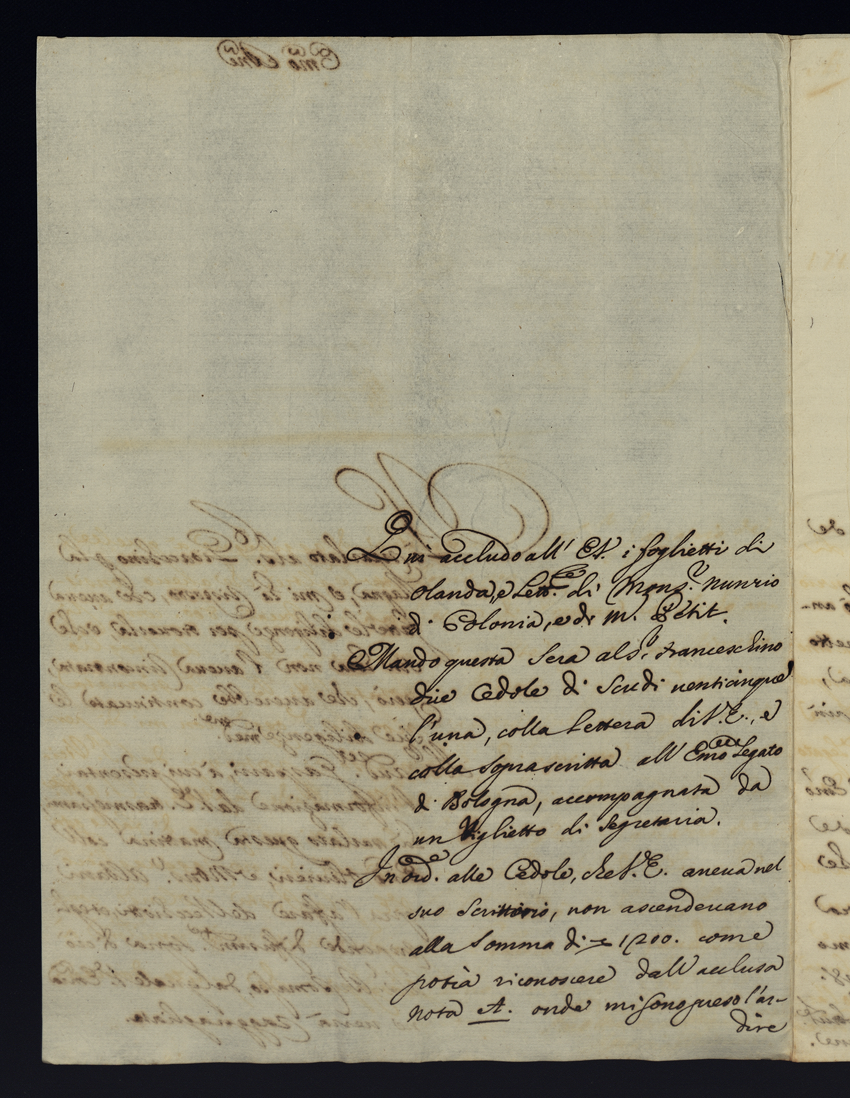 Qui accludo all' E.V. i foglietti di
Olanda, e Lett.e di Mons.r Nunzio
di Colonia, e di M. Petit.
Mando questa sera al S.r Franceschino
due Cedole di Scudi venticinque
l'una, colla lettera di V.E., e
colla soprascritta all' Emo Legato
di Bologna, accompagnata da
un Viglietto di Segretaria.
In ord.e alle Cedole, che V.E. aveva nel
suo scrittorio, non ascendevano
alla somma di 1200. come
potrà riconoscere dall' acclusa
nota A. onde mi sono preso l'ar-
dire